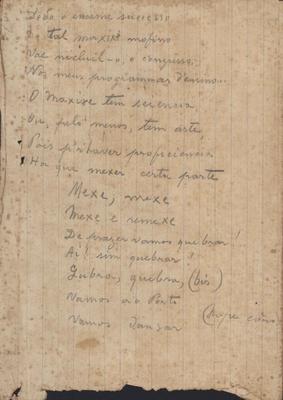 o enorme successo
O tal maxixe mofino
Vae incluil-o, o congresso,
Nos meus programmas d'ensino...
O Maxixe tem sciencia
Ou, pelo menos, tem arte,
Pois p'r'haver proficiencia
Ha que mexer certa parte
Mexe, mexe
Mexe e remexe
De prazer vamos quebrar!
Ai! sim quebrar!
Quebra, quebra, (bis)
Vamos
Vamos dansar